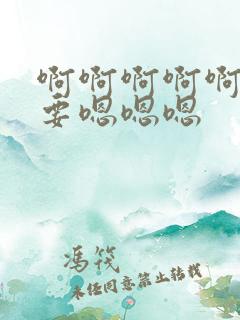 啊啊啊啊啊
要嗯嗯嗯
冯筏
未经同意禁止转载